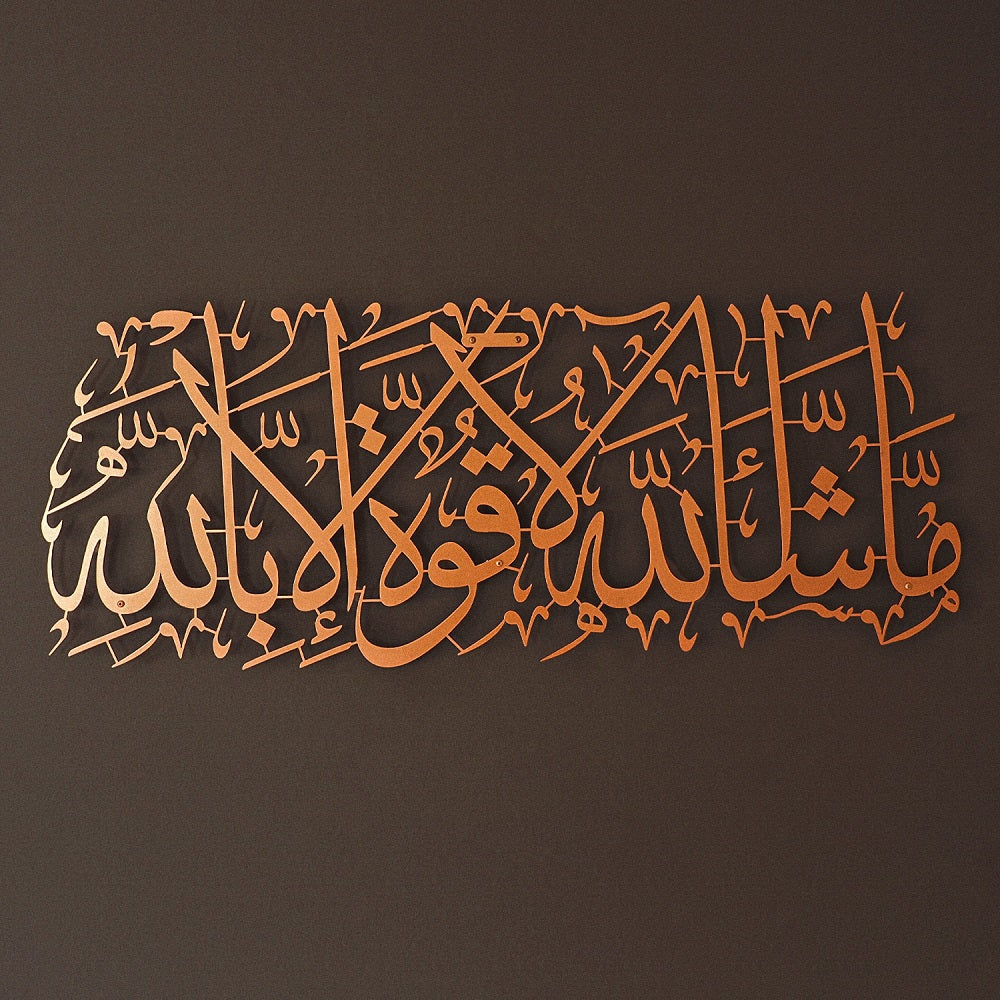 مَّاشَاءَ اللّٰهُ لَا قُوَّةَ إِلَّا بِاللّٰهِ